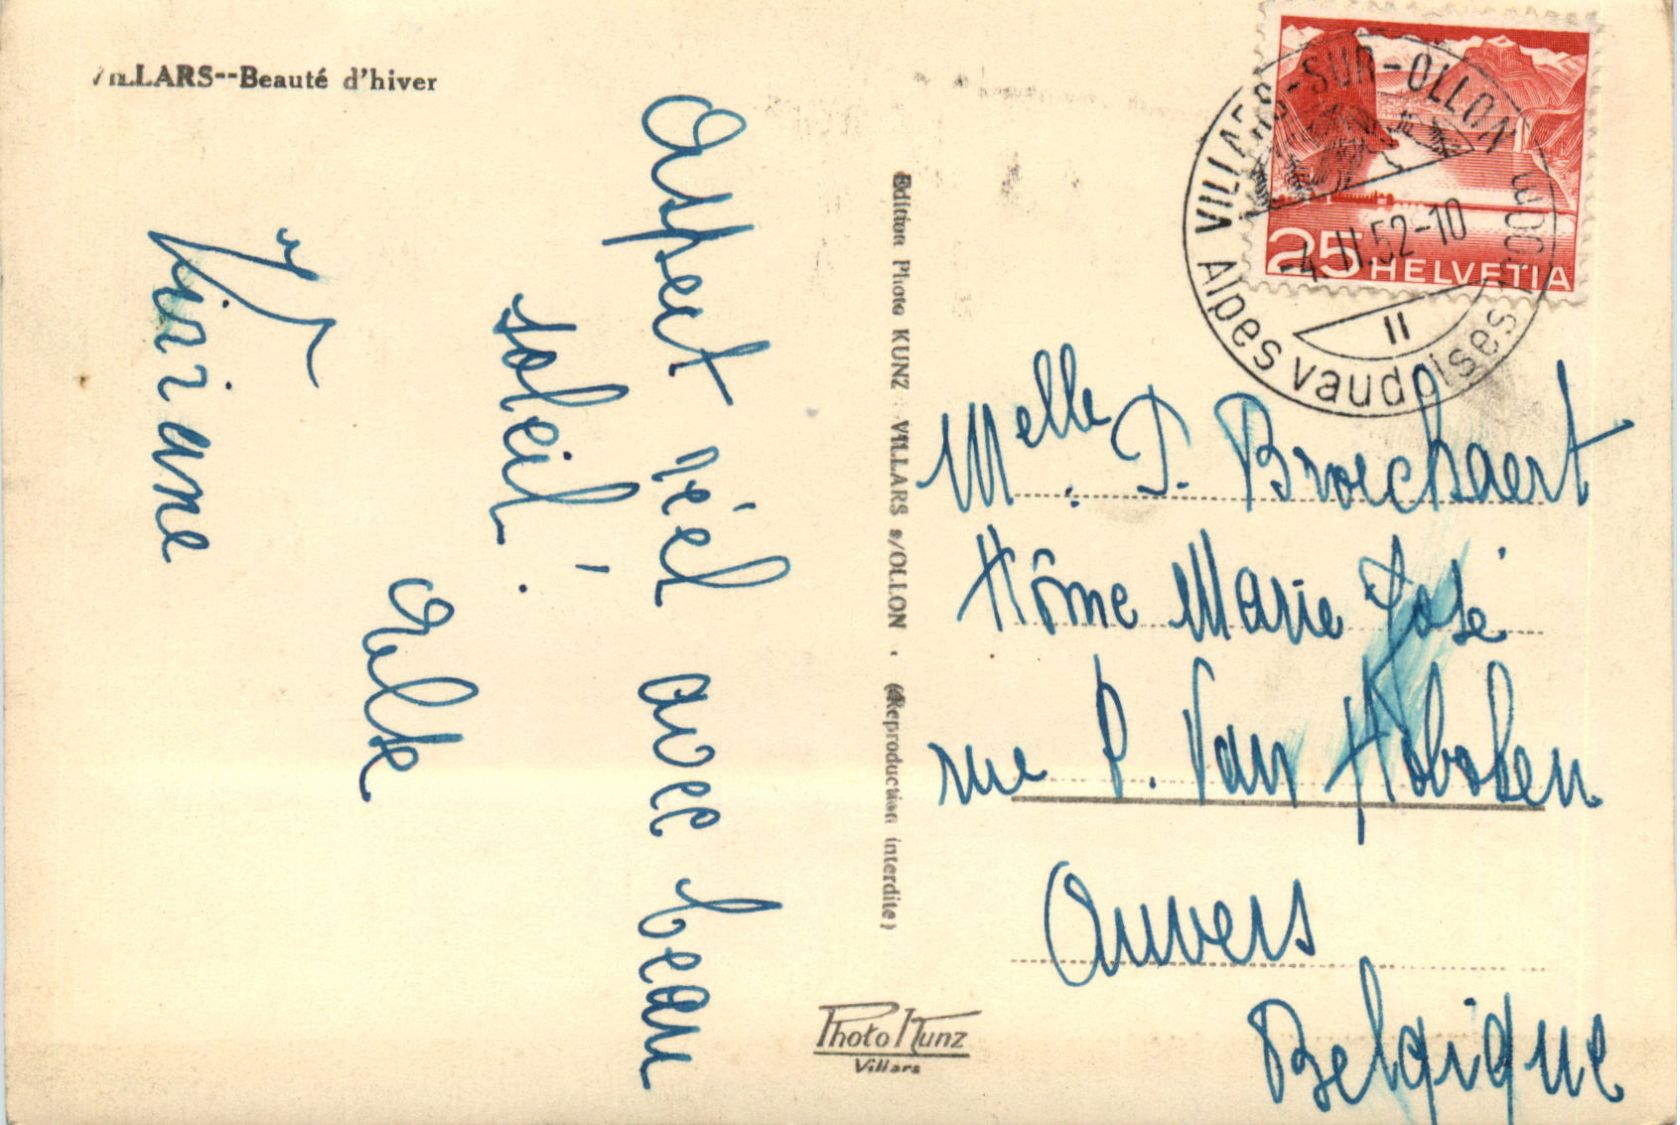 VILLARS--Beauté d'hiver
Aspect réel avec beau
soleil!
Viviane
Edition Photo KUNZ - VILLARS s/OLLON . (Reproduction interdite)
Photo Kunz
Villars
VILLARS-SUR-OLLON
-4.II.52-10
Alpes vaudoises
II
25 HELVETIA
Melle. P. Broechaert
Hôme Marie José
rue P. Van Hoboken
Anvers
Belgique